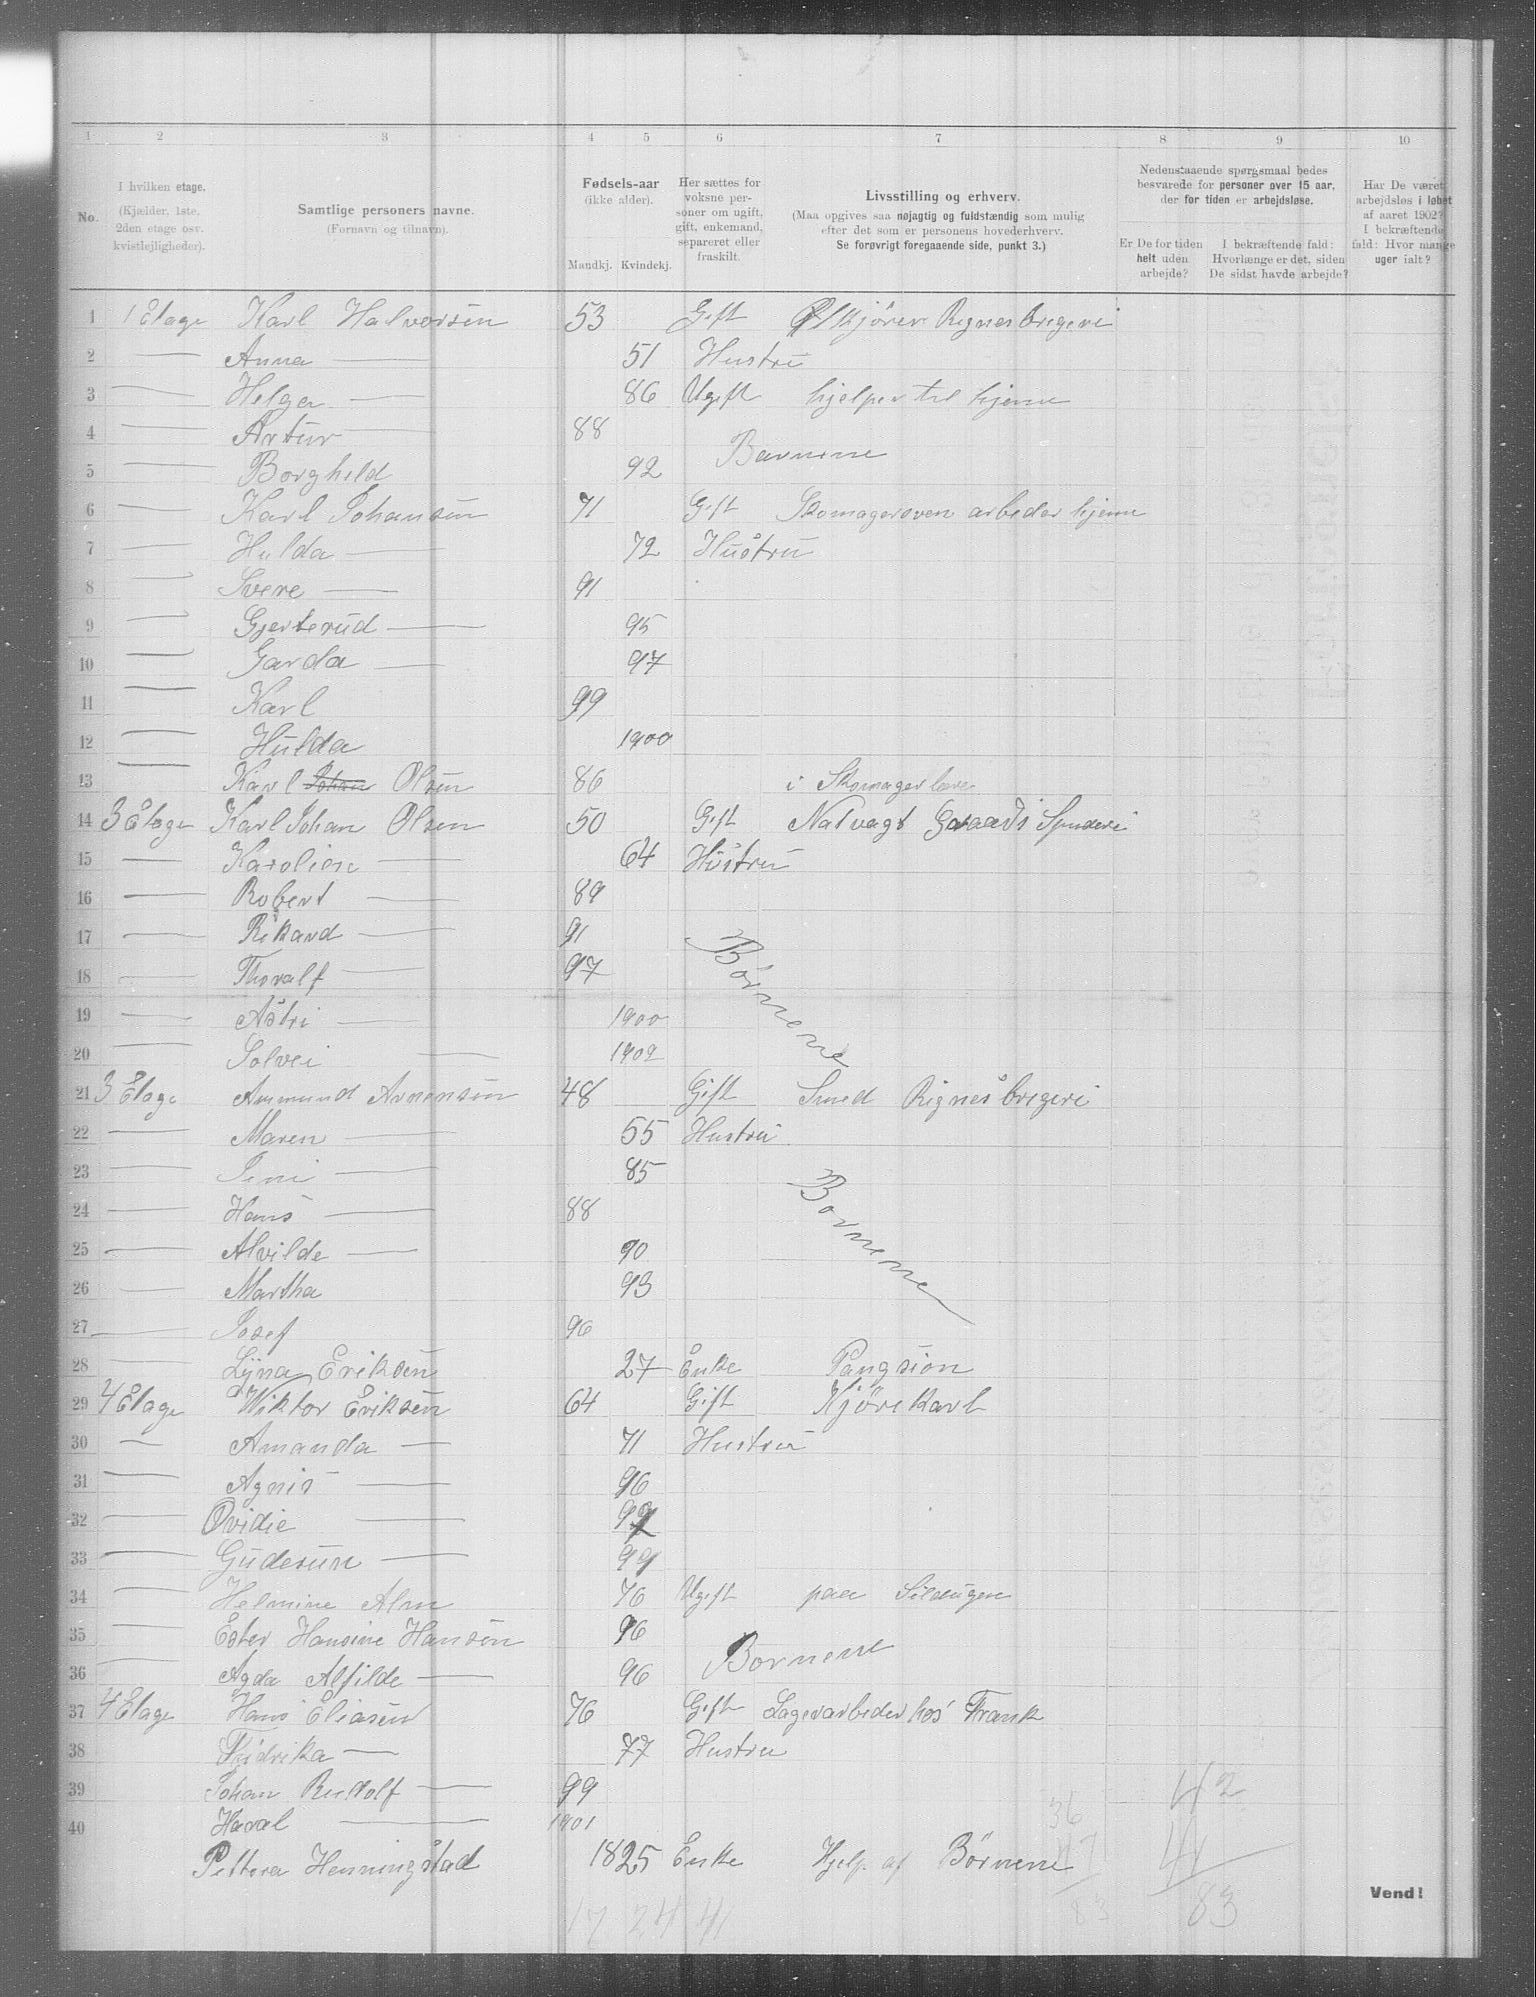 1 2 3 4 5 6 7 8 9 10
No.
I hvilken etage. (Kjælder, 1ste, 2den etage osv. kvistlejligheder).
Samtlige personers navne. (Fornavn og tilnavn).
Fødsels-aar (ikke alder). Mandkj. Kvindekj.
Her sættes for voksne personer om ugift, gift, enkemand, separeret eller fraskilt.
Livsstilling og erhverv. (Maa opgives saa nøjagtig og fuldstændig som mulig efter det som er personens hovederhverv. Se forøvrigt foregaaende side, punkt 3.)
Nedenstaaende spørgsmaal bedes besvarede for personer over 15 aar, der for tiden er arbejdsløse.
Er De for tiden helt uden arbejde?
I bekræftende fald: Hvorlænge er det, siden De sidst havde arbejde?
Har De været arbejdsløs i løbet af aaret 1902? I bekræftende fald: Hvor mange uger ialt?
1 1 Etage Karl Halvorsen 53 Gift Ølkjører Rignes brygeri
2 — Anna — 51 Hustru
3 — Helga — 86 Ugift hjelper til hjeme
4 — Artur — 88
Barnene
5 — Borghild 92
6 — Karl Johansen 71 Gift Skomagersven arbeder hjeme
7 — Hulda — 72 Hustru
8 — Svere — 91
9 — Gjerterud — 95
10 — Garda — 97
11 — Karl 99
12 — Hulda 1900
13 — Karl Johan Olsen 86 i Skomagerlære
14 3 Etage Karl Johan Olsen 50 Gift Natvagt Graads Spinderi
15 — Karolien — 64 Hustru
16 — Robert — 89
17 — Rikard — 91
18 — Thoralf — 97
Børnene
19 — Astri — 1900
20 — Solvei — 1902
21 3 Etage Ammund Arnensen 48 Gift Smed Rignes brygeri
22 — Maren — 55 Hustru
23 — Jeni — 85
24 — Hans — 88
Børnene
25 — Alvilde — 90
26 — Martha 93
27 — Josef 96
28 — Lyna Eriksen 27 Enke Pangsion
29 4 Etage Wiktor Eriksen 64 Gift Kjørekarl
30 — Amanda — 71 Hustru
31 — Agnis — 96
32 — Ovidie — 97
33 — Guderun — 99
34 — Helmine Alm 76 Ugift paa Seldugen
35 — Ester Hansine Hansen 96
Bornene
36 — Agda Alfilde — 96
37 4 Etage Hans Eliasen 76 Gift Lagerarbeder hos Frank
38 Fridrika — 77 Hustru
39 Johan Rudolf — 99
40 Haral — 1901
Pettera Henningstad 1825 Enke Hjelp af Børnene
36 47 83
42 41 83
17 24 41
Vend!